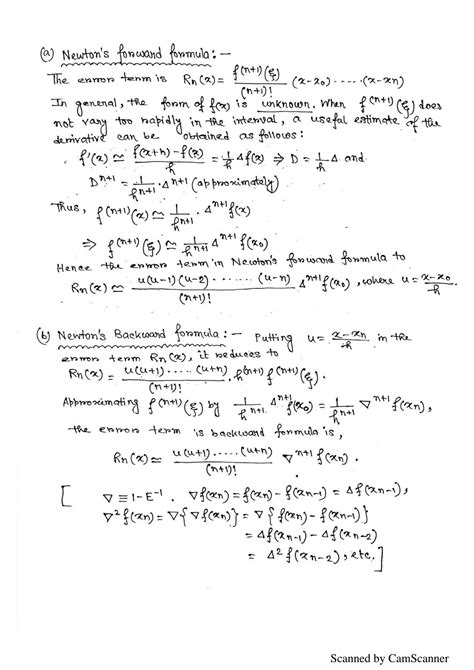 (a) Newton's forward formula:—
The error term is Rn(x) = f^(n+1)(ξ)/(n+1)! (x-x0)·····(x-xn)
In general, the form of f(x) is unknown. When f^(n+1)(ξ) does
not vary too rapidly in the interval, a useful estimate of the
derivative can be obtained as follows:
f'(x) ≃ f(x+h)-f(x)/h = 1/h Δf(x) ⇒ D = 1/h Δ and
D^n+1 = 1/h^n+1 · Δ^n+1 (approximately)
Thus, f^(n+1)(x) ≃ 1/h^n+1 · Δ^n+1 f(x)
⇒ f^(n+1)(ξ) ≃ 1/h^n+1 Δ^n+1 f(x0)
Hence the error term in Newton's forward formula to
Rn(x) ≃ u(u-1)(u-2)······(u-n)/(n+1)! Δ^n+1 f(x0), where u = x-x0/h.
(b) Newton's Backward formula:— Putting u = x-xn/h in the
error term Rn(x), it reduces to
Rn(x) = u(u+1)······(u+n)/(n+1)! · h^(n+1) f^(n+1)(ξ).
Approximating f^(n+1)(ξ) by 1/h^n+1 · Δ^n+1 f(x0) = 1/h^n+1 ∇^n+1 f(xn),
the error term is backward formula is,
Rn(x) ≃ u(u+1)······(u+n)/(n+1)! ∇^n+1 f(xn).
[ ∇ ≡ 1-E^-1 . ∇f(xn) = f(xn) - f(xn-1) = Δf(xn-1),
∇^2 f(xn) = ∇{∇f(xn)} = ∇{f(xn) - f(xn-1)}
= Δf(xn-1) - Δf(xn-2)
= Δ^2 f(xn-2), etc. ]
Scanned by CamScanner